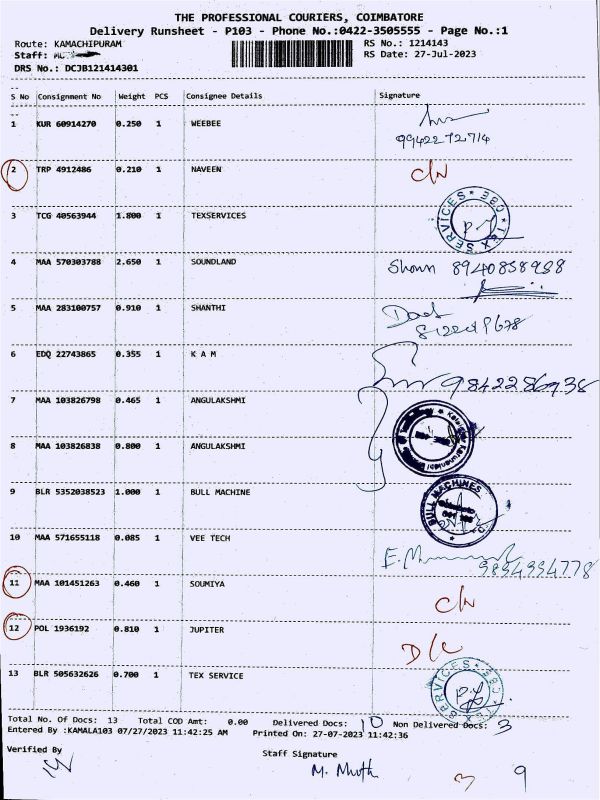 THE PROFESSIONAL COURIERS, COIMBATORE
Delivery Runsheet - P103 - Phone No.:0422-3505555 - Page No.:1
Route: KAMACHIPURAM RS No.: 1214143
Staff: RS Date: 27-Jul-2023
DRS No.: DCJB121414301
S No Consignment No Weight PCS Consignee Details Signature
1 KUR 60914270 0.250 1 WEEBEE
9942272714
2 TRP 4912486 0.210 1 NAVEEN C/N
3 TCG 40563944 1.800 1 TEXSERVICES TEX SERVICES * CBE *
4 MAA 570303788 2.650 1 SOUNDLAND 8940858938
5 MAA 283100757 0.910 1 SHANTHI
6 EDQ 22743865 0.355 1 K A M 9842286938
7 MAA 103826798 0.465 1 ANGULAKSHMI
8 MAA 103826838 0.800 1 ANGULAKSHMI
9 BLR 5352038523 1.000 1 BULL MACHINE BULL MACHINES
10 MAA 571655118 0.085 1 VEE TECH 9894994778
11 MAA 101451263 0.460 1 SOUMIYA C/N
12 POL 1936192 0.810 1 JUPITER D/L
13 BLR 505632626 0.700 1 TEX SERVICE TEX SERVICES * CBE *
Total No. Of Docs: 13 Total COD Amt: 0.00 Delivered Docs: 10 Non Delivered Docs: 3
Entered By :KAMALA103 07/27/2023 11:42:25 AM Printed On: 27-07-2023 11:42:36
Verified By Staff Signature
M. Muth 3 9